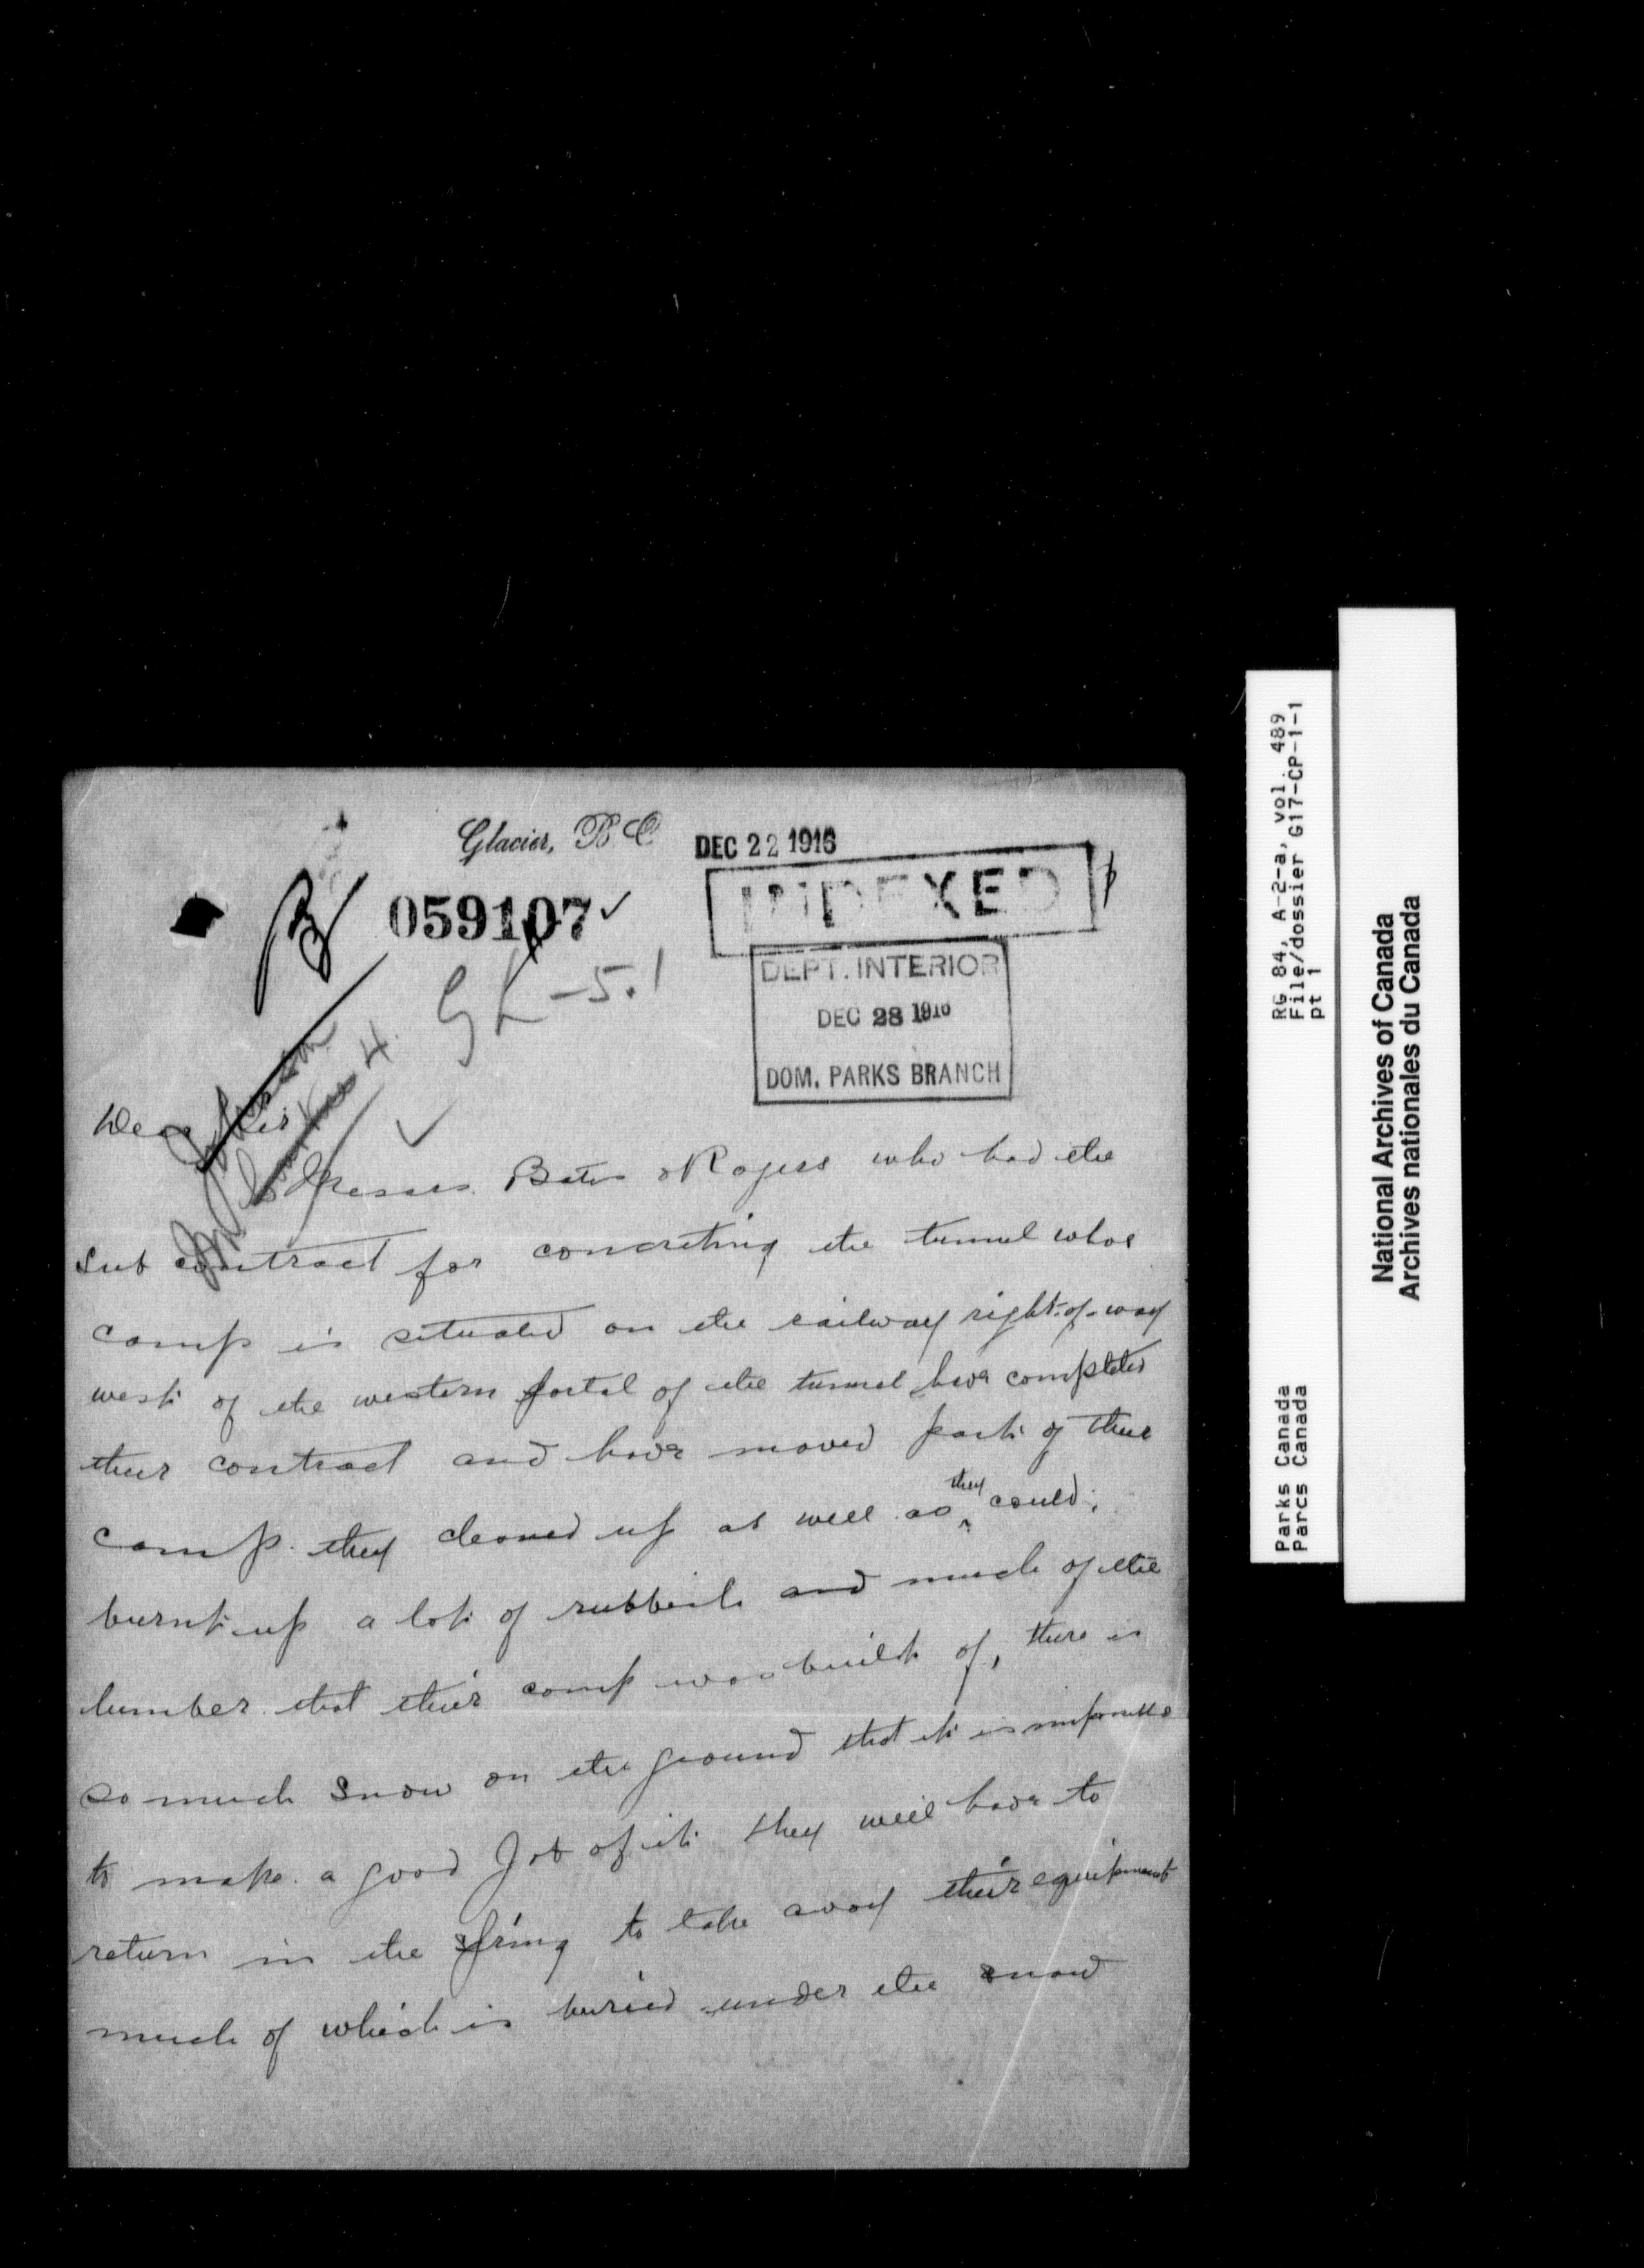 Glacier, B C
DEC 22 1916
INDEXED
059107
GL-5.1
DEPT. INTERIOR
DEC 28 1916
DOM. PARKS BRANCH
4.
Dear Sir
Messrs. Bates & Rogers who had the
sub contract for concreting the tunnel whos
camp is situated on the railway right-of-way
west of the western portal of the tunnel have completed
their contract and have moved part of their
camp. they cleaned up as well as they could,
burnt up a lot of rubbish and much of the
lumber that their camp was built of, there is
so much snow on the ground that it is impossible
to make a good Job of it they will have to
return in the spring to take away their equipment
much of which is buried under the snow
RG 84, A-2-a, vol. 489
File/dossier G17-CP-1-1
pt 1
Parks Canada
Parcs Canada
National Archives of Canada
Archives nationales du Canada